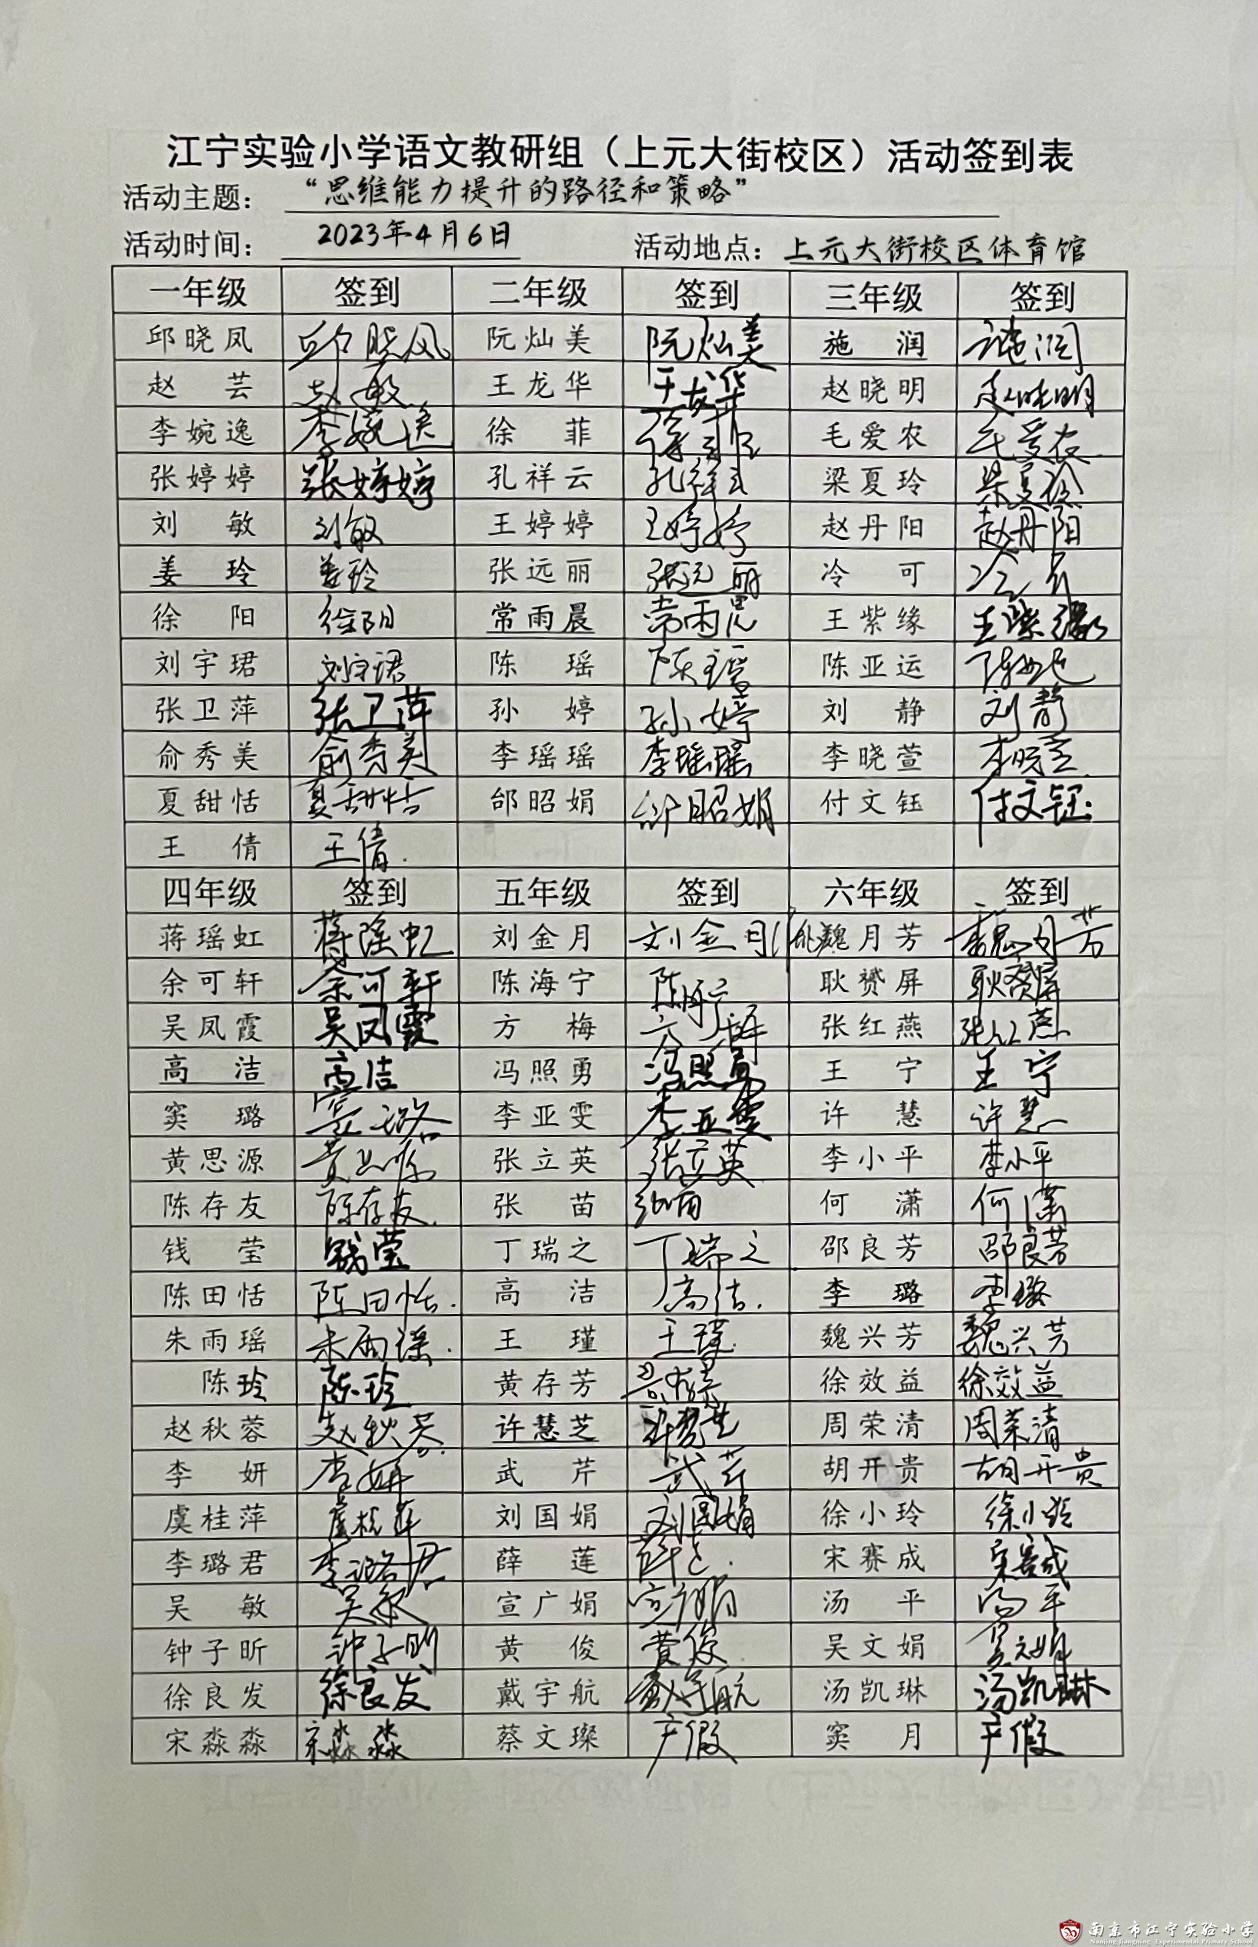 江宁实验小学语文教研组（上元大街校区）活动签到表
活动主题： “思维能力提升的路径和策略”
活动时间： 2023年4月6日 活动地点： 上元大街校区体育馆
一年级 签到 二年级 签到 三年级 签到
邱晓凤 邱晓凤 阮灿美 阮灿美 施润 施润
赵芸 王龙华 王龙华 赵晓明 赵晓明
李婉逸 李婉逸 徐菲 徐菲 毛爱农 毛爱农
张婷婷 张婷婷 孔祥云 孔祥云 梁夏玲 梁夏玲
刘敏 刘敏 王婷婷 王婷婷 赵丹阳 赵丹阳
姜玲 姜玲 张远丽 张远丽 冷可 冷可
徐阳 徐阳 常雨晨 常雨晨 王紫缘 王紫缘
刘宇珺 刘宇珺 陈瑶 陈瑶 陈亚运 陈亚运
张卫萍 张卫萍 孙婷 孙婷 刘静 刘静
俞秀美 俞秀美 李瑶瑶 李瑶瑶 李晓萱 李晓萱
夏甜恬 夏甜恬 邰昭娟 邰昭娟 付文钰 付文钰
王倩 王倩
四年级 签到 五年级 签到 六年级 签到
蒋瑶虹 蒋瑶虹 刘金月 刘金月 魏月芳 魏月芳
余可轩 余可轩 陈海宁 陈海宁 耿赟屏 耿赟屏
吴凤霞 吴凤霞 方梅 张红燕 张红燕
高洁 高洁 冯照勇 冯照勇 王宁 王宁
窦璐 窦璐 李亚雯 李亚雯 许慧 许慧
黄思源 黄思源 张立英 张立英 李小平 李小平
陈存友 陈存友 张苗 张苗 何潇 何潇
钱莹 钱莹 丁瑞之 丁瑞之 邵良芳 邵良芳
陈田恬 陈田恬 高洁 高洁 李璐 李璐
朱雨瑶 朱雨瑶 王瑾 王瑾 魏兴芳 魏兴芳
陈玲 陈玲 黄存芳 徐效益 徐效益
赵秋蓉 赵秋蓉 许慧芝 许慧芝 周荣清 周荣清
李妍 李妍 武芹 武芹 胡开贵 胡开贵
虞桂萍 虞桂萍 刘国娟 刘国娟 徐小玲 徐小玲
李璐君 李璐君 薛莲 薛莲 宋赛成 宋赛成
吴敏 吴敏 宣广娟 宣广娟 汤平 汤平
钟子昕 钟子昕 黄俊 黄俊 吴文娟 吴文娟
徐良发 徐良发 戴宇航 戴宇航 汤凯琳 汤凯琳
宋淼淼 宋淼淼 蔡文璨 产假 窦月 产假
南京市江宁实验小学
Nanjing Jiangning Experimental Primary School